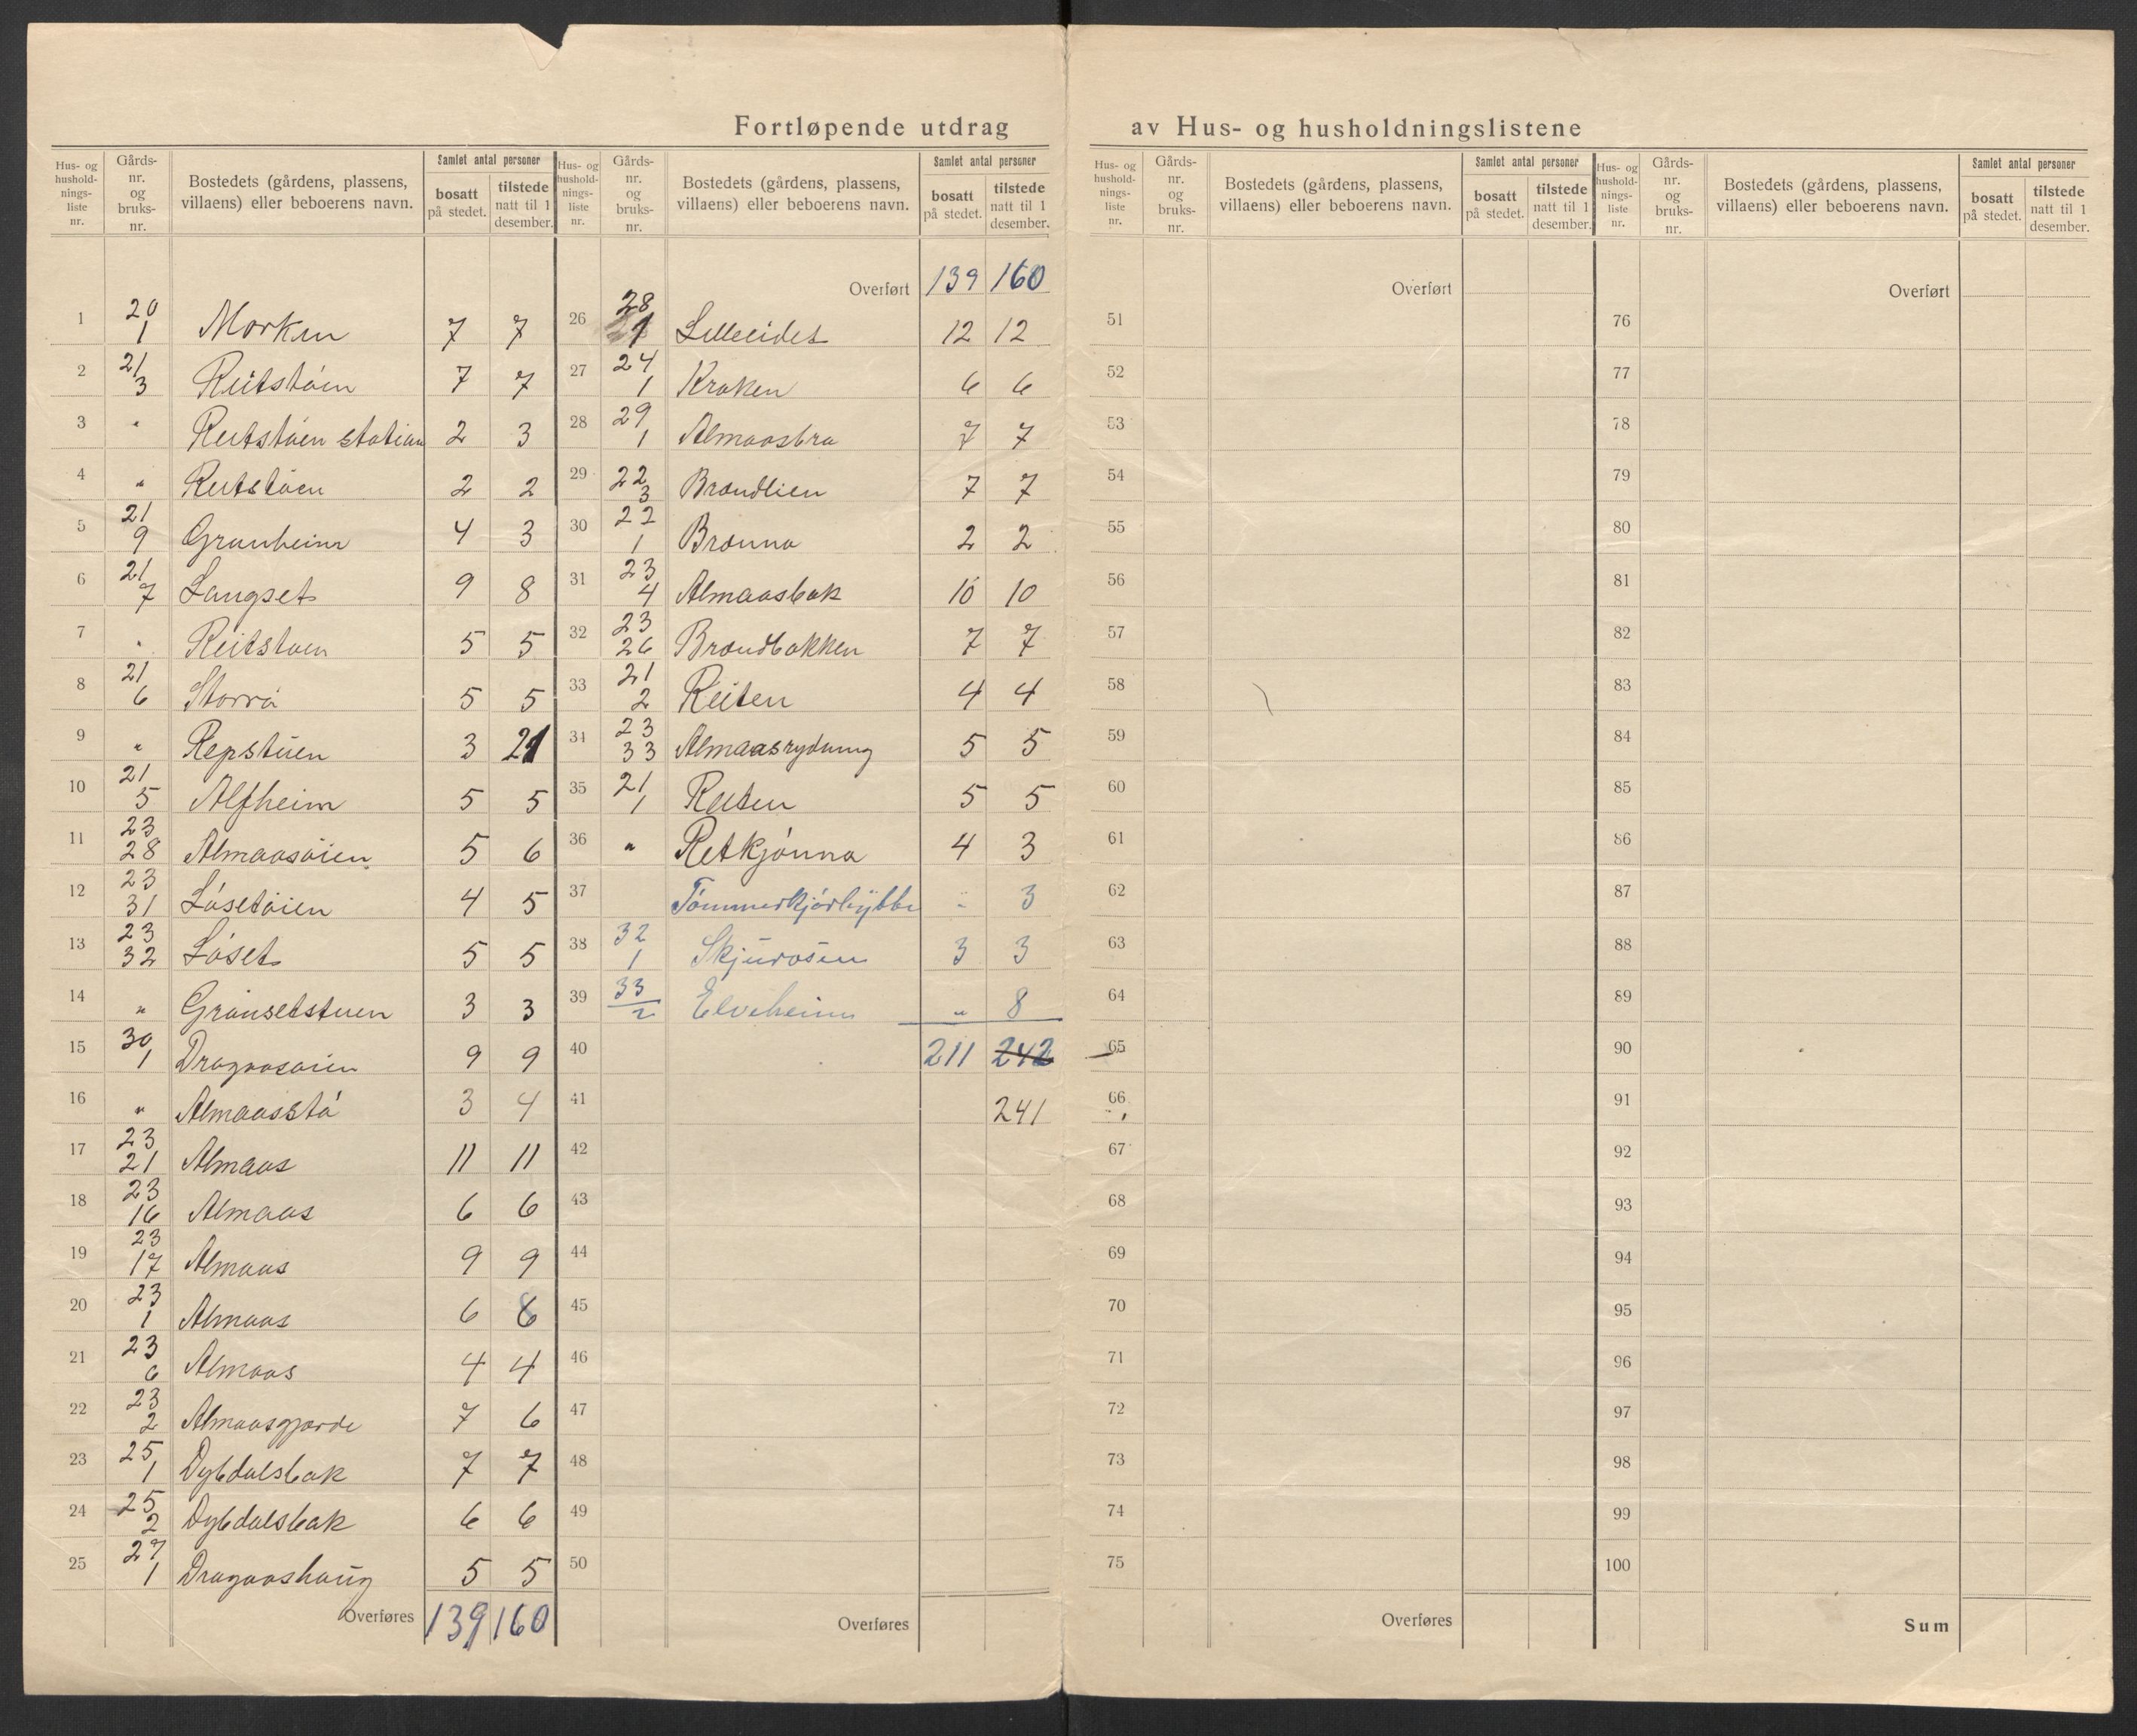 Fortløpende utdrag av Hus- og husholdningslistene
Hus- og hushold- nings- liste nr. Gårds- nr. og bruks- nr. Bostedets (gårdens, plassens, villaens) eller beboerens navn. Samlet antal personer bosatt på stedet. tilstede natt til 1 desember.
1 20 1 Morken 7 7
2 21 3 Reitstöen 7 7
3 " Reitstöen station 2 3
4 " Reitstöen 2 2
5 21 9 Granheim 4 3
6 21 7 Langset 9 8
7 " Reitstoen 5 5
8 21 6 Storrö 5 5
9 " Repstuen 3 21
10 21 5 Alfheim 5 5
11 23 28 Almaasöien 5 6
12 23 31 Lösetöien 4 5
13 23 32 Löset 5 5
14 " Grönsetstuen 3 3
15 30 1 Dragaasöien 9 9
16 " Almaasstö 3 4
17 23 21 Almaas 11 11
18 23 16 Almaas 6 6
19 23 17 Almaas 9 9
20 23 1 Almaas 6 8
21 23 6 Almaas 4 4
22 23 2 Almaasgjærde 7 6
23 25 1 Dybdalsbak 7 7
24 25 2 Dybdalsbak 6 6
25 27 1 Dragaashaug 5 5
Overføres 139 160
Hus- og hushold- nings- liste nr. Gårds- nr. og bruks- nr. Bostedets (gårdens, plassens, villaens) eller beboerens navn. Samlet antal personer bosatt på stedet. tilstede natt til 1 desember.
Overført 139 160
26 28 1 Lilleeidet 12 12
27 24 1 Kroken 6 6
28 29 1 Almaasbra 7 7
29 22 3 Brændlien 7 7
30 22 1 Brænna 2 2
31 23 4 Almaasbak 10 10
32 23 26 Brændbakken 7 7
33 21 2 Reiten 4 4
34 23 33 Almaasrydning 5 5
35 21 1 Reiten 5 5
36 " Retkjönna 4 3
37 Tömmerkjörhytte " 3
38 32 1 Skjurosen 3 3
39 33 2 Elveheim " 8
40 211 242
41 241
42
43
44
45
46
47
48
49
50
Overføres
Hus- og hushold- nings- liste nr. Gårds- nr. og bruks- nr. Bostedets (gårdens, plassens, villaens) eller beboerens navn. Samlet antal personer bosatt på stedet. tilstede natt til 1 desember.
Overført
51
52
53
54
55
56
57
58
59
60
61
62
63
64
65
66
67
68
69
70
71
72
73
74
75
Overføres
Hus- og hushold- nings- liste nr. Gårds- nr. og bruks- nr. Bostedets (gårdens, plassens, villaens) eller beboerens navn. Samlet antal personer bosatt på stedet. tilstede natt til 1 desember.
Overført
76
77
78
79
80
81
82
83
84
85
86
87
88
89
90
91
92
93
94
95
96
97
98
99
100
Sum